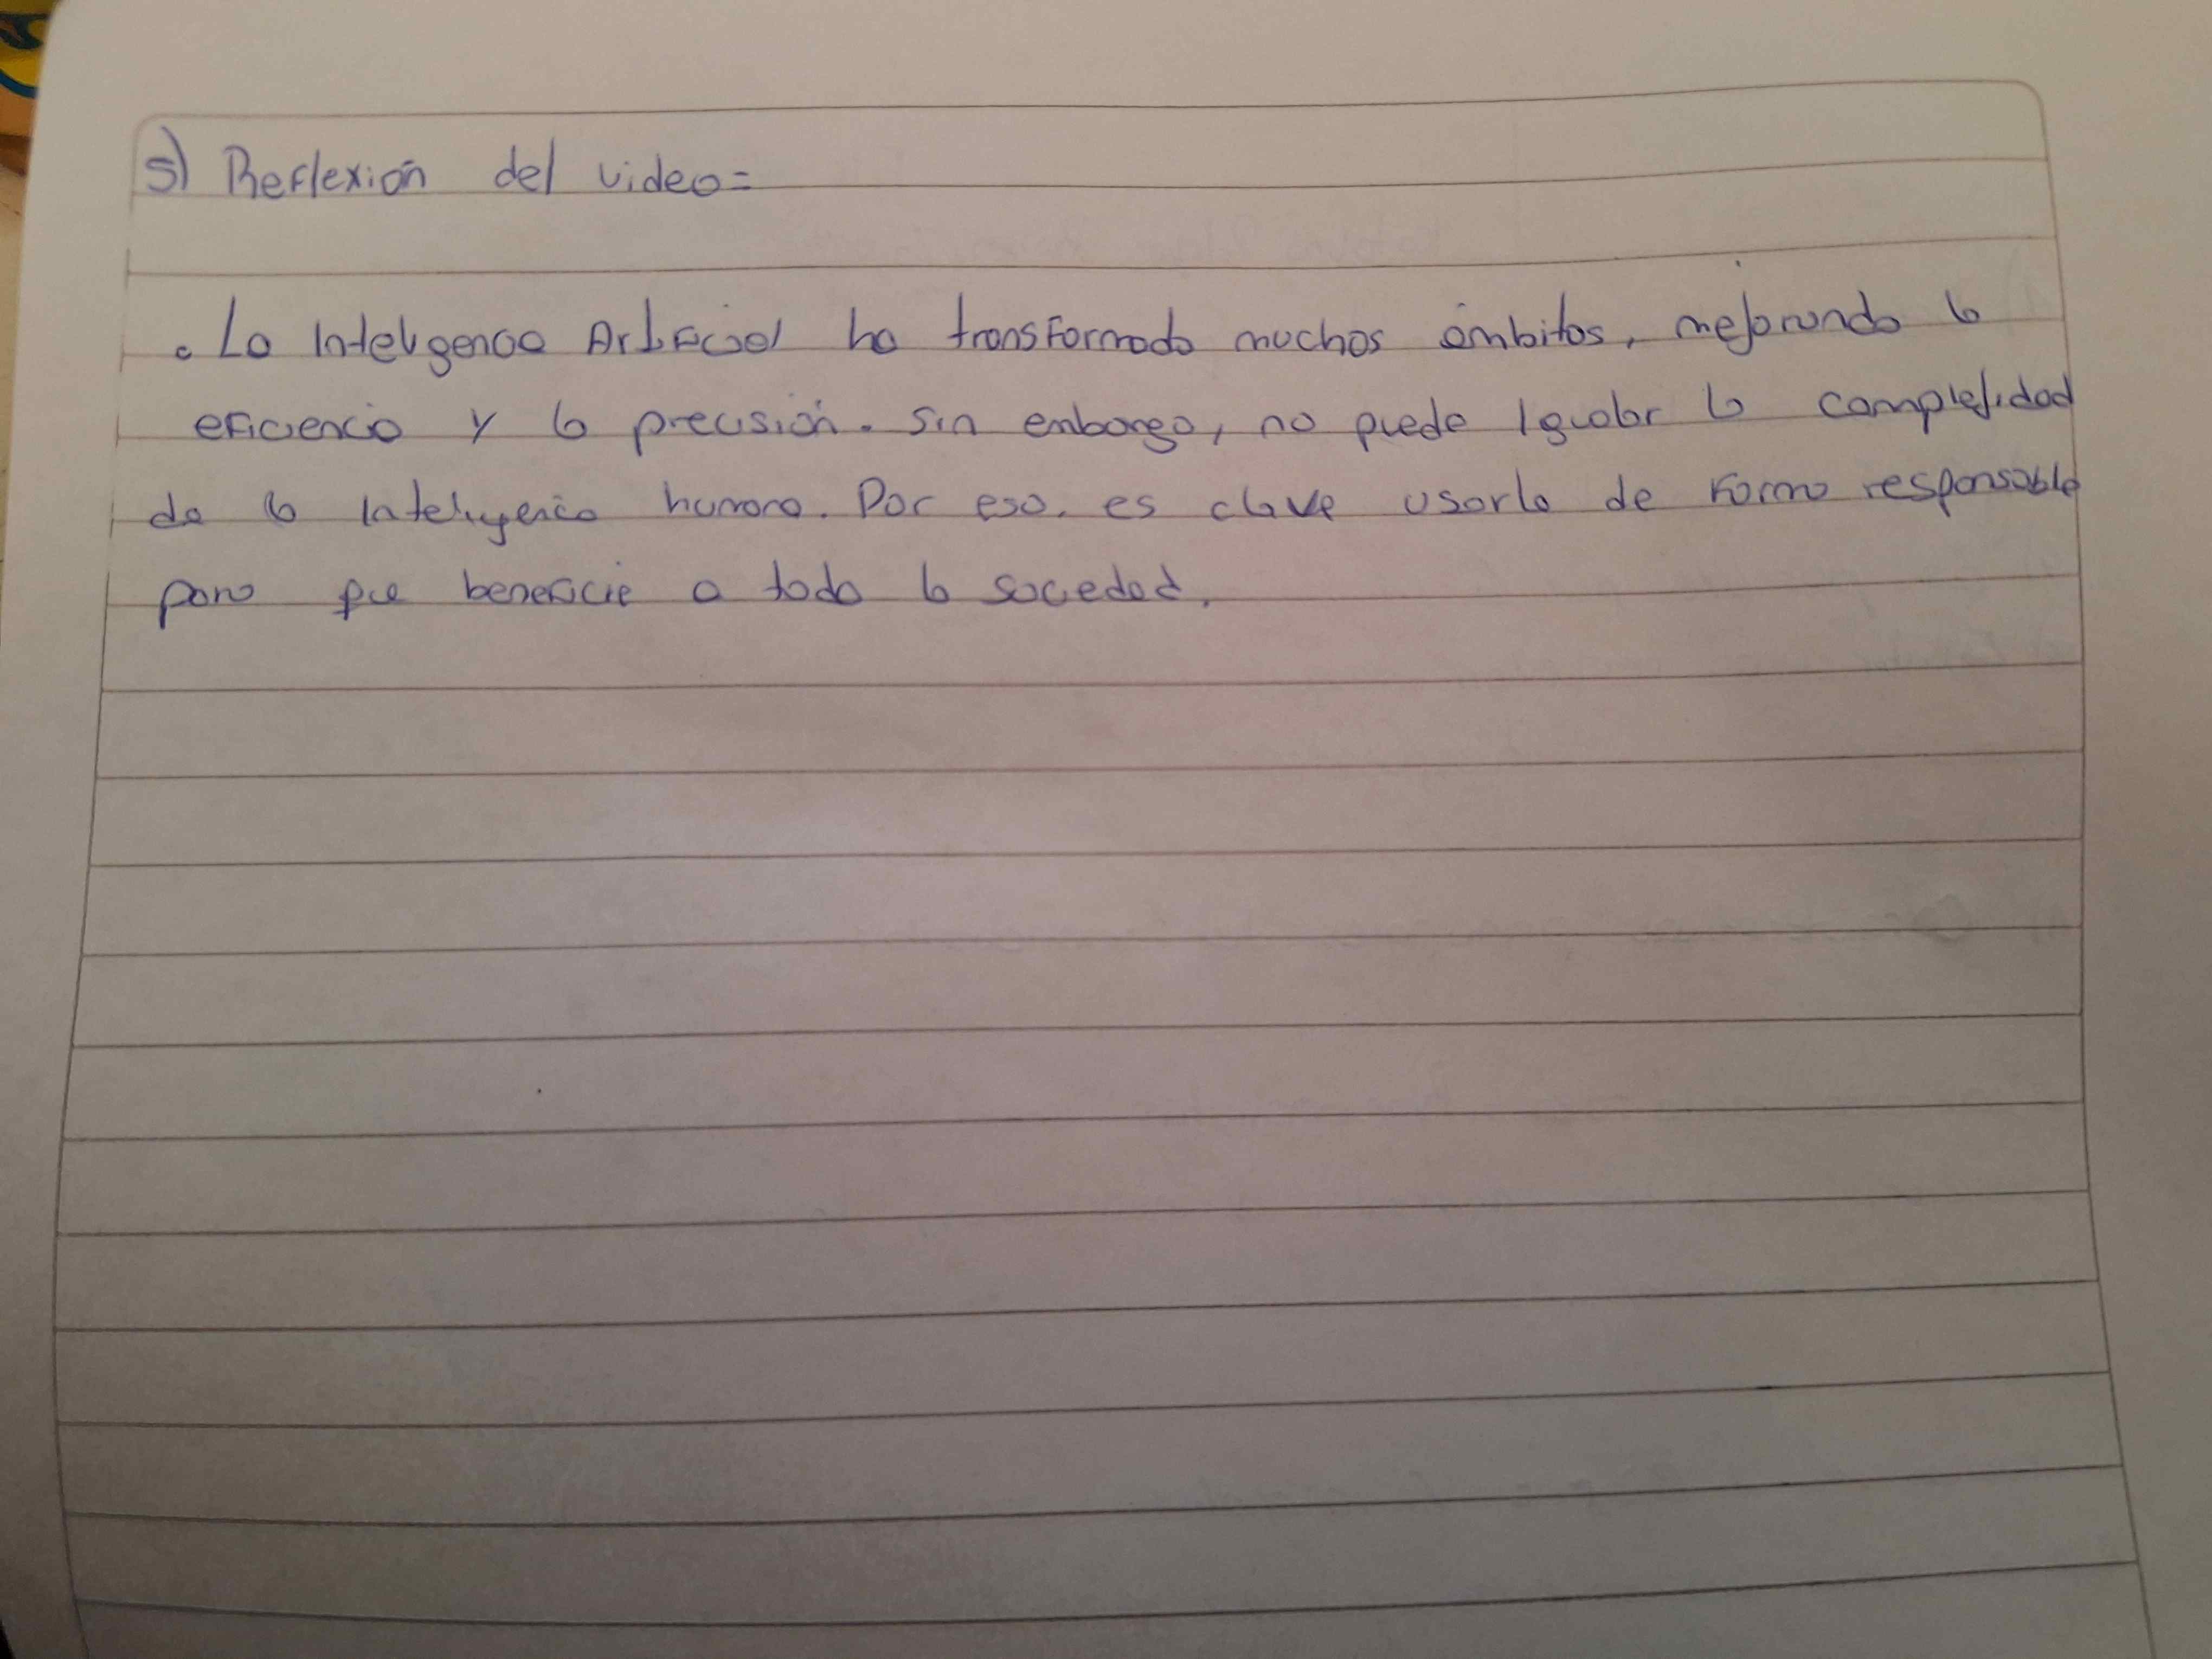 5) Reflexión del video=
• La Inteligencia Artificial ha transformado muchos ámbitos, mejorando la
eficiencia y la precisión. Sin embargo, no puede Igualar la complejidad
de la Inteligencia humana. Por eso, es clave usarla de forma responsable
para que beneficie a toda la sociedad.